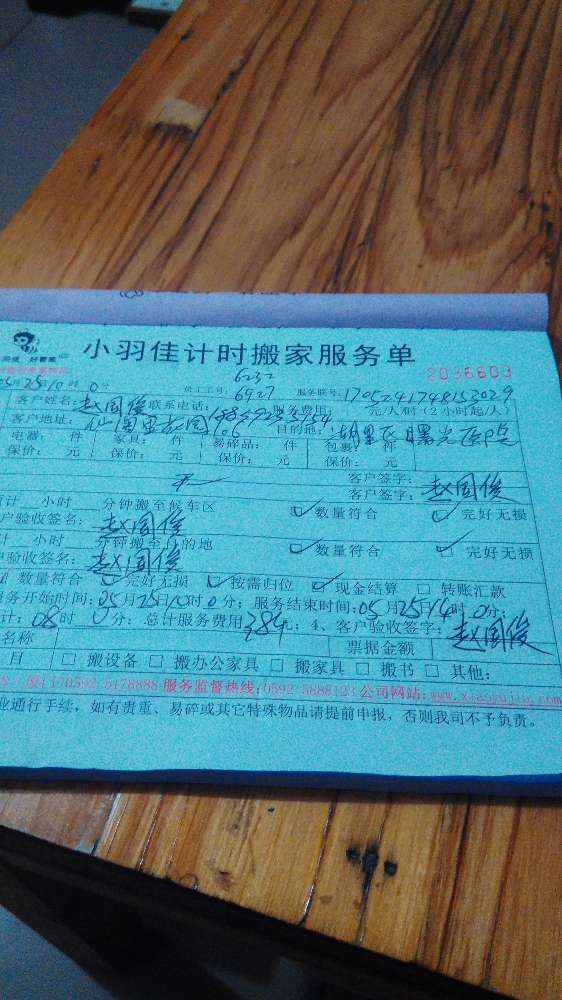 小羽佳计时搬家服务单
2036603
05月25日10时0分 员工工号: 6232 6427 服务联号: 1705241748153029
客户姓名: 赵国俊 联系电话: 服务费用: 元/人/时(2小时起/人)
客户地址: 目的地: 湖里区曙光医院
电器: 件 家具: 件 易碎品: 件 包裹: 件
保价: 元 保价: 元 保价: 元 保价: 元
无 客户签字:
客户签字: 赵国俊
计 小时 分钟搬至候车区 ☑ 数量符合 ☑ 完好无损
户验收签名: 赵国俊
计 小时 分钟搬至目的地 ☑ 数量符合 ☑ 完好无损
户验收签名: 赵国俊
数量符合 ☑ 完好无损 ☑ 按需归位 ☑ 现金结算 □ 转账汇款
服务开始时间: 05月25日10时0分; 服务结束时间: 05月25日14时0分;
计: 08时0分; 总计服务费用 384; 4、客户验收签字: 赵国俊
名称 票据金额
目 □ 搬设备 □ 搬办公家具 □ 搬家具 □ 搬书 □ 其他:
0592-5178888 服务监督热线: 0592-5888123 公司网站: www.xiaoyujia.com
业通行手续, 如有贵重、易碎或其它特殊物品请提前申报, 否则我司不予负责。